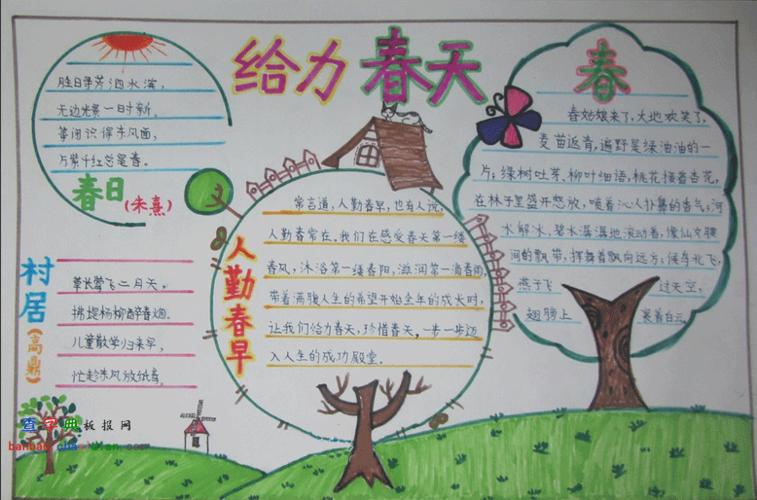 给力春天
胜日寻芳泗水滨，
无边光景一时新，
等闲识得东风面，
万紫千红总是春。
春日
(朱熹)
村居
(高鼎)
草长莺飞二月天，
拂堤杨柳醉春烟。
儿童散学归来早，
忙趁东风放纸鸢。
人勤春早
常言道，人勤春早，也有人说，
人勤春常在。我们在感受春天第一缕
春风，沐浴第一缕春阳，滋润第一滴春雨，
带着满腹人生的希望开始全年的成长时，
让我们给力春天，珍惜春天，一步一步迈
入人生的成功殿堂。
春
春姑娘来了，大地欢笑了，
麦苗返青，遍野是绿油油的一
片，绿树吐芽，柳叶细语，桃花
在林子里盛开怒放，喷着沁人扑鼻的香气，河
水解冻，碧水潺潺地流动着，像仙女腰
间的飘带，挥舞着飘向远方，候鸟北飞，
燕子飞 过天空，
翅膀上 裹着白云。
查字典板报网
banbao.chazidian.com